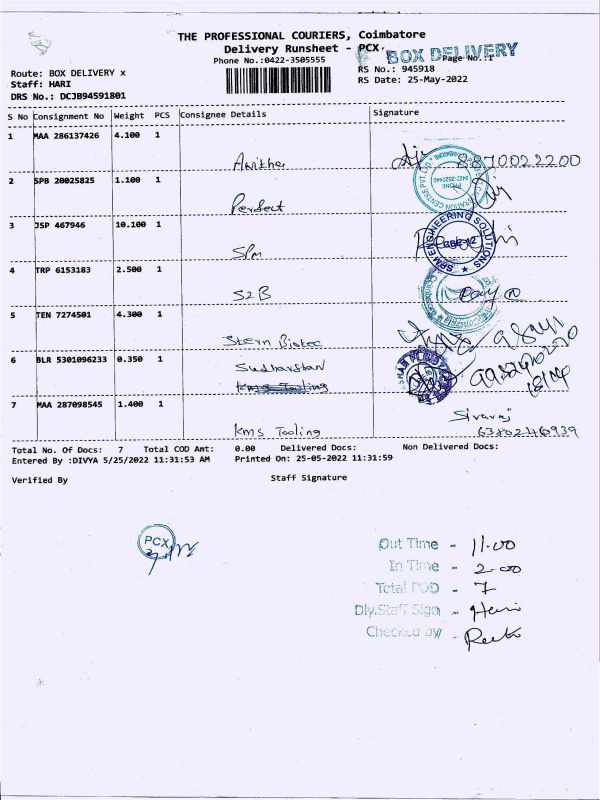 THE PROFESSIONAL COURIERS, Coimbatore
Delivery Runsheet - PCX,
BOX DELIVERY
Phone No.:0422-3505555
Page No.:1
Route: BOX DELIVERY x
RS No.: 945918
Staff: HARI
RS Date: 25-May-2022
DRS No.: DCJB94591801
S No Consignment No Weight PCS Consignee Details Signature
1 MAA 286137426 4.100 1
8870022200
2 SPB 20025825 1.100 1
Perfect
3 JSP 467946 10.100 1
SPM ENGINEERING SOLUTIONS
SPM
4 TRP 6153183 2.500 1
S2B
5 TEN 7274501 4.300 1
6 BLR 5301096233 0.350 1
Sudharshan
KMS Tooling
7 MAA 287098545 1.400 1
Sivaraj
KMS Tooling
6380246939
Total No. Of Docs: 7 Total COD Amt: 0.00 Delivered Docs: Non Delivered Docs:
Entered By :DIVYA 5/25/2022 11:31:53 AM Printed On: 25-05-2022 11:31:59
Verified By Staff Signature
PCX
Out Time - 11.00
In Time - 2.00
Total POD - 7
Dly.Staff Sign - Hari
Checked by -